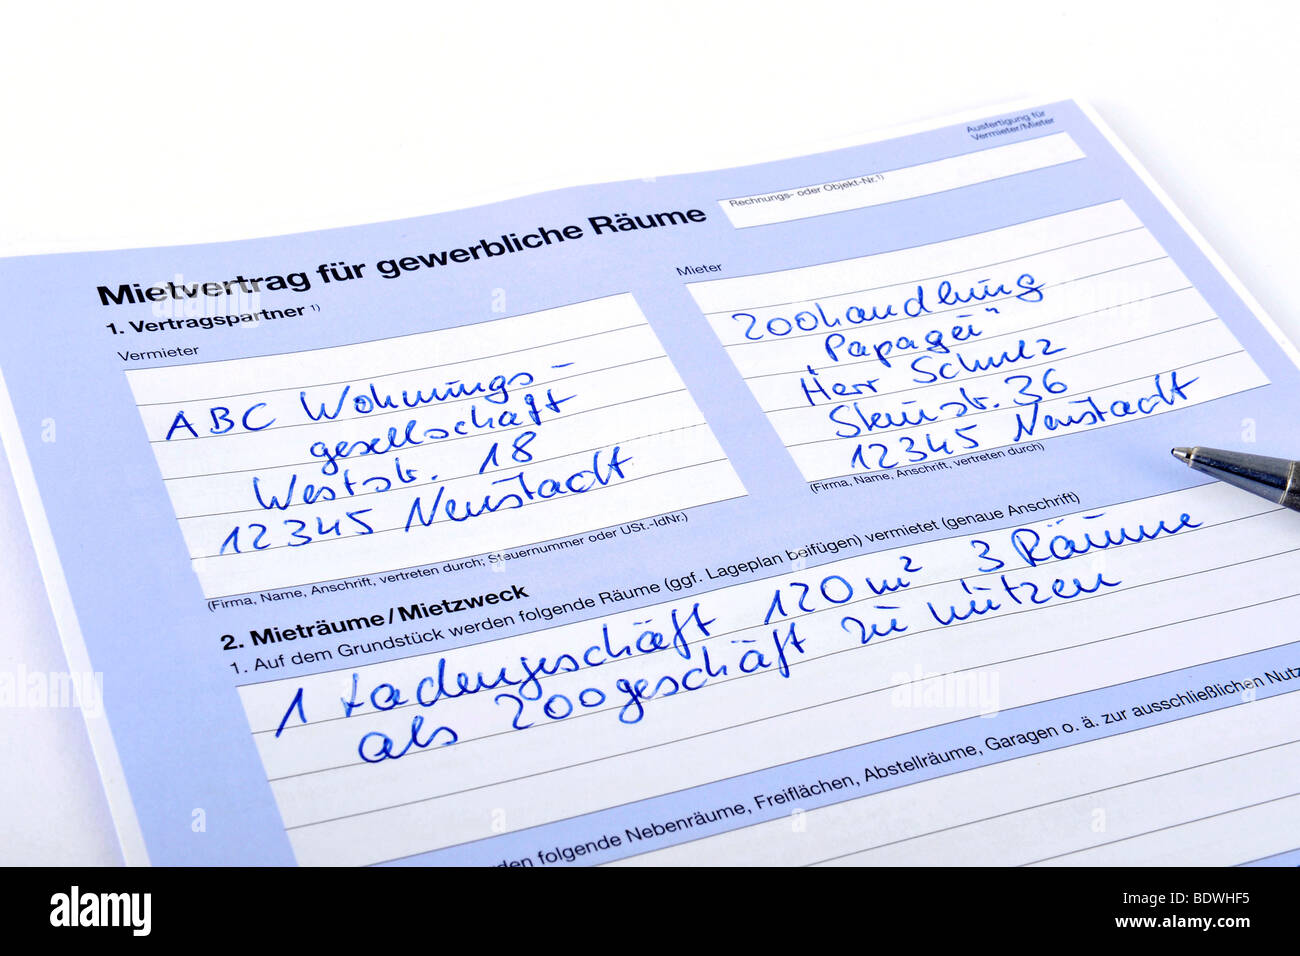 Ausfertigung für
Vermieter/Mieter
Rechnungs- oder Objekt-Nr.1)
Mietvertrag für gewerbliche Räume
1. Vertragspartner 1)
Vermieter
ABC Wohnungs-
gesellschaft
Weststr. 18
12345 Neustadt
(Firma, Name, Anschrift, vertreten durch; Steuernummer oder USt.-IdNr.)
Mieter
Zoohandlung
„Papagei"
Herr Schulz
Steinstr. 36
12345 Neustadt
(Firma, Name, Anschrift, vertreten durch)
2. Mieträume/Mietzweck
1. Auf dem Grundstück werden folgende Räume (ggf. Lageplan beifügen) vermietet (genaue Anschrift)
1 Ladengeschäft 120 m² 3 Räume
als Zoogeschäft zu nutzen
rden folgende Nebenräume, Freiflächen, Abstellräume, Garagen o. ä. zur ausschließlichen Nutz
a
alamy
a
alamy
alamy
a
a
alamy
Image ID: BDWHF5
www.alamy.com